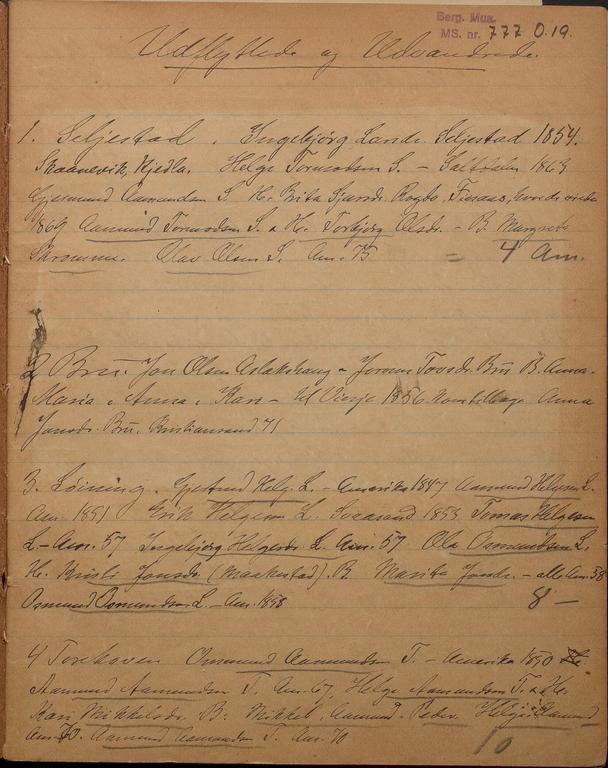 Berg. Mus.
MS. nr. 777 O.19.
Udflyttede og Udvandrede.
1. Seljestad. Ingebjörg Larsdr. Seljestad 1854.
Skaanevik, Kjedla. Helge Tormodsen S. - Saltdalen 1863
Gjermund Aamundsen S. H. Brita Sjursdr. Rogbo,
1869 Aamund Tormodsen S. & H. Torbjörg Olsdr. - B. Margreta
Skromme. Olav Olsen S. Am. 75 = 4 Am.
2 Bru. Jon Olsen Aslakshaug - Jorunn Tovsdr. Bru B. Anna.
Maria, Anna, Kari - til Vinje 1856. Kom tilbage. Anna
Jonsdr. Bru. Kristiansand 71
3. Löining. Gjertrud Helg. L. - Amerika 1847 Aamund Helgesen L.
Am. 1851 Erik Helgesen L. 1853 Tomas Helgesen
L - Am. 57 Ingebjörg Helgesdr. L. Am. 57 Ola Osmundsen L.
H. Kristi Jonsdr. (Maakestad). B. Marita Jonsdr. - alle Am. 58
Osmund Osmundsen L. - Am. 1858 8 -
4 Aamundsen T. - Amerika 1850
Aamund Aamundsen T. Am. 67, Helge Aamundsen T. & H.
Kari Mikkelsdr. B: Mikkel, Aamund, Peder. Helge
Am. Aamund Aamundsen T. Am. 70 10